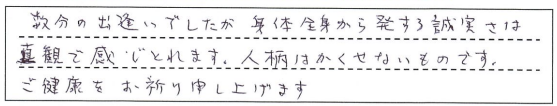 数分の出逢いでしたが 身体全身から発する誠実さは
直観で感じとれます。人柄はかくせないものです。
ご健康をお祈り申し上げます